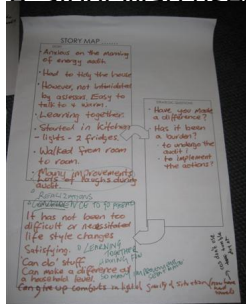 STORY MAP
Anxious on the morning
of energy audit
Had to tidy the house
However, not intimidated
by assessor. Easy to
talk to & warm.
Learning together.
Started in kitchen
- lights - 2 fridges.
Walked from room
to room.
Many improvements
Lots of laughs during
audit.
Realisations
It has not been too
difficult or necessitated
life style changes
Satisfying.
Can do stuff
Can make a difference at
a household level
Can give up comforts in
LEARNING
TOGETHER
HAVING FUN
Have you made
a difference?
Has it been
a burden?
- to undergo the
audit?
- to implement
the actions?